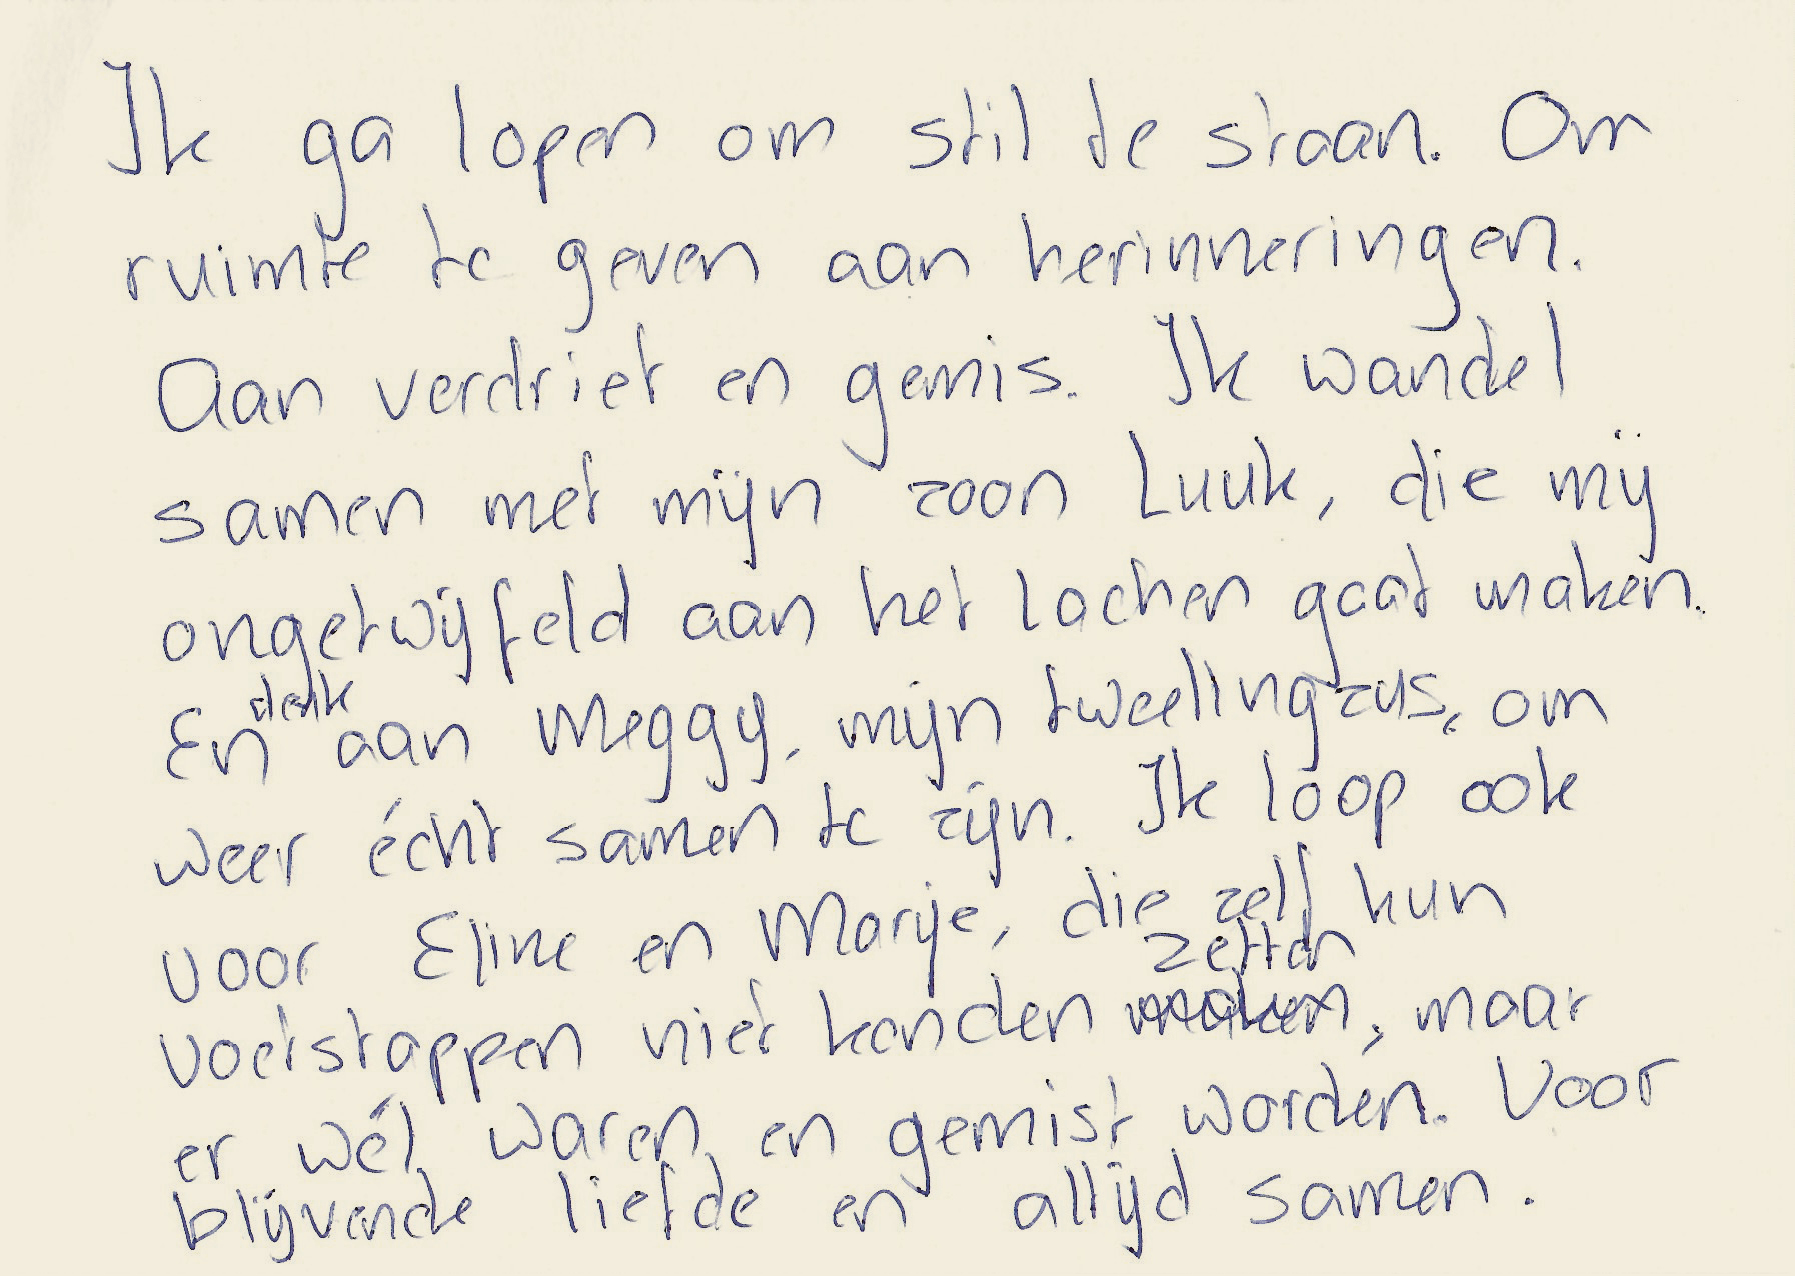 Ik ga lopen om stil te staan. Om
ruimte te geven aan herinneringen.
Aan verdriet en gemis. Ik wandel
samen met mijn zoon Luuk, die mij
ongetwijfeld aan het lachen gaat maken.
En denk aan Meggy, mijn tweelingzus, om
weer écht samen te zijn. Ik loop ook
voor Eline en Marije, die zelf hun
zetten
voetstappen niet konden maken, maar
er wél waren en gemist worden. Voor
blijvende liefde en altijd samen.